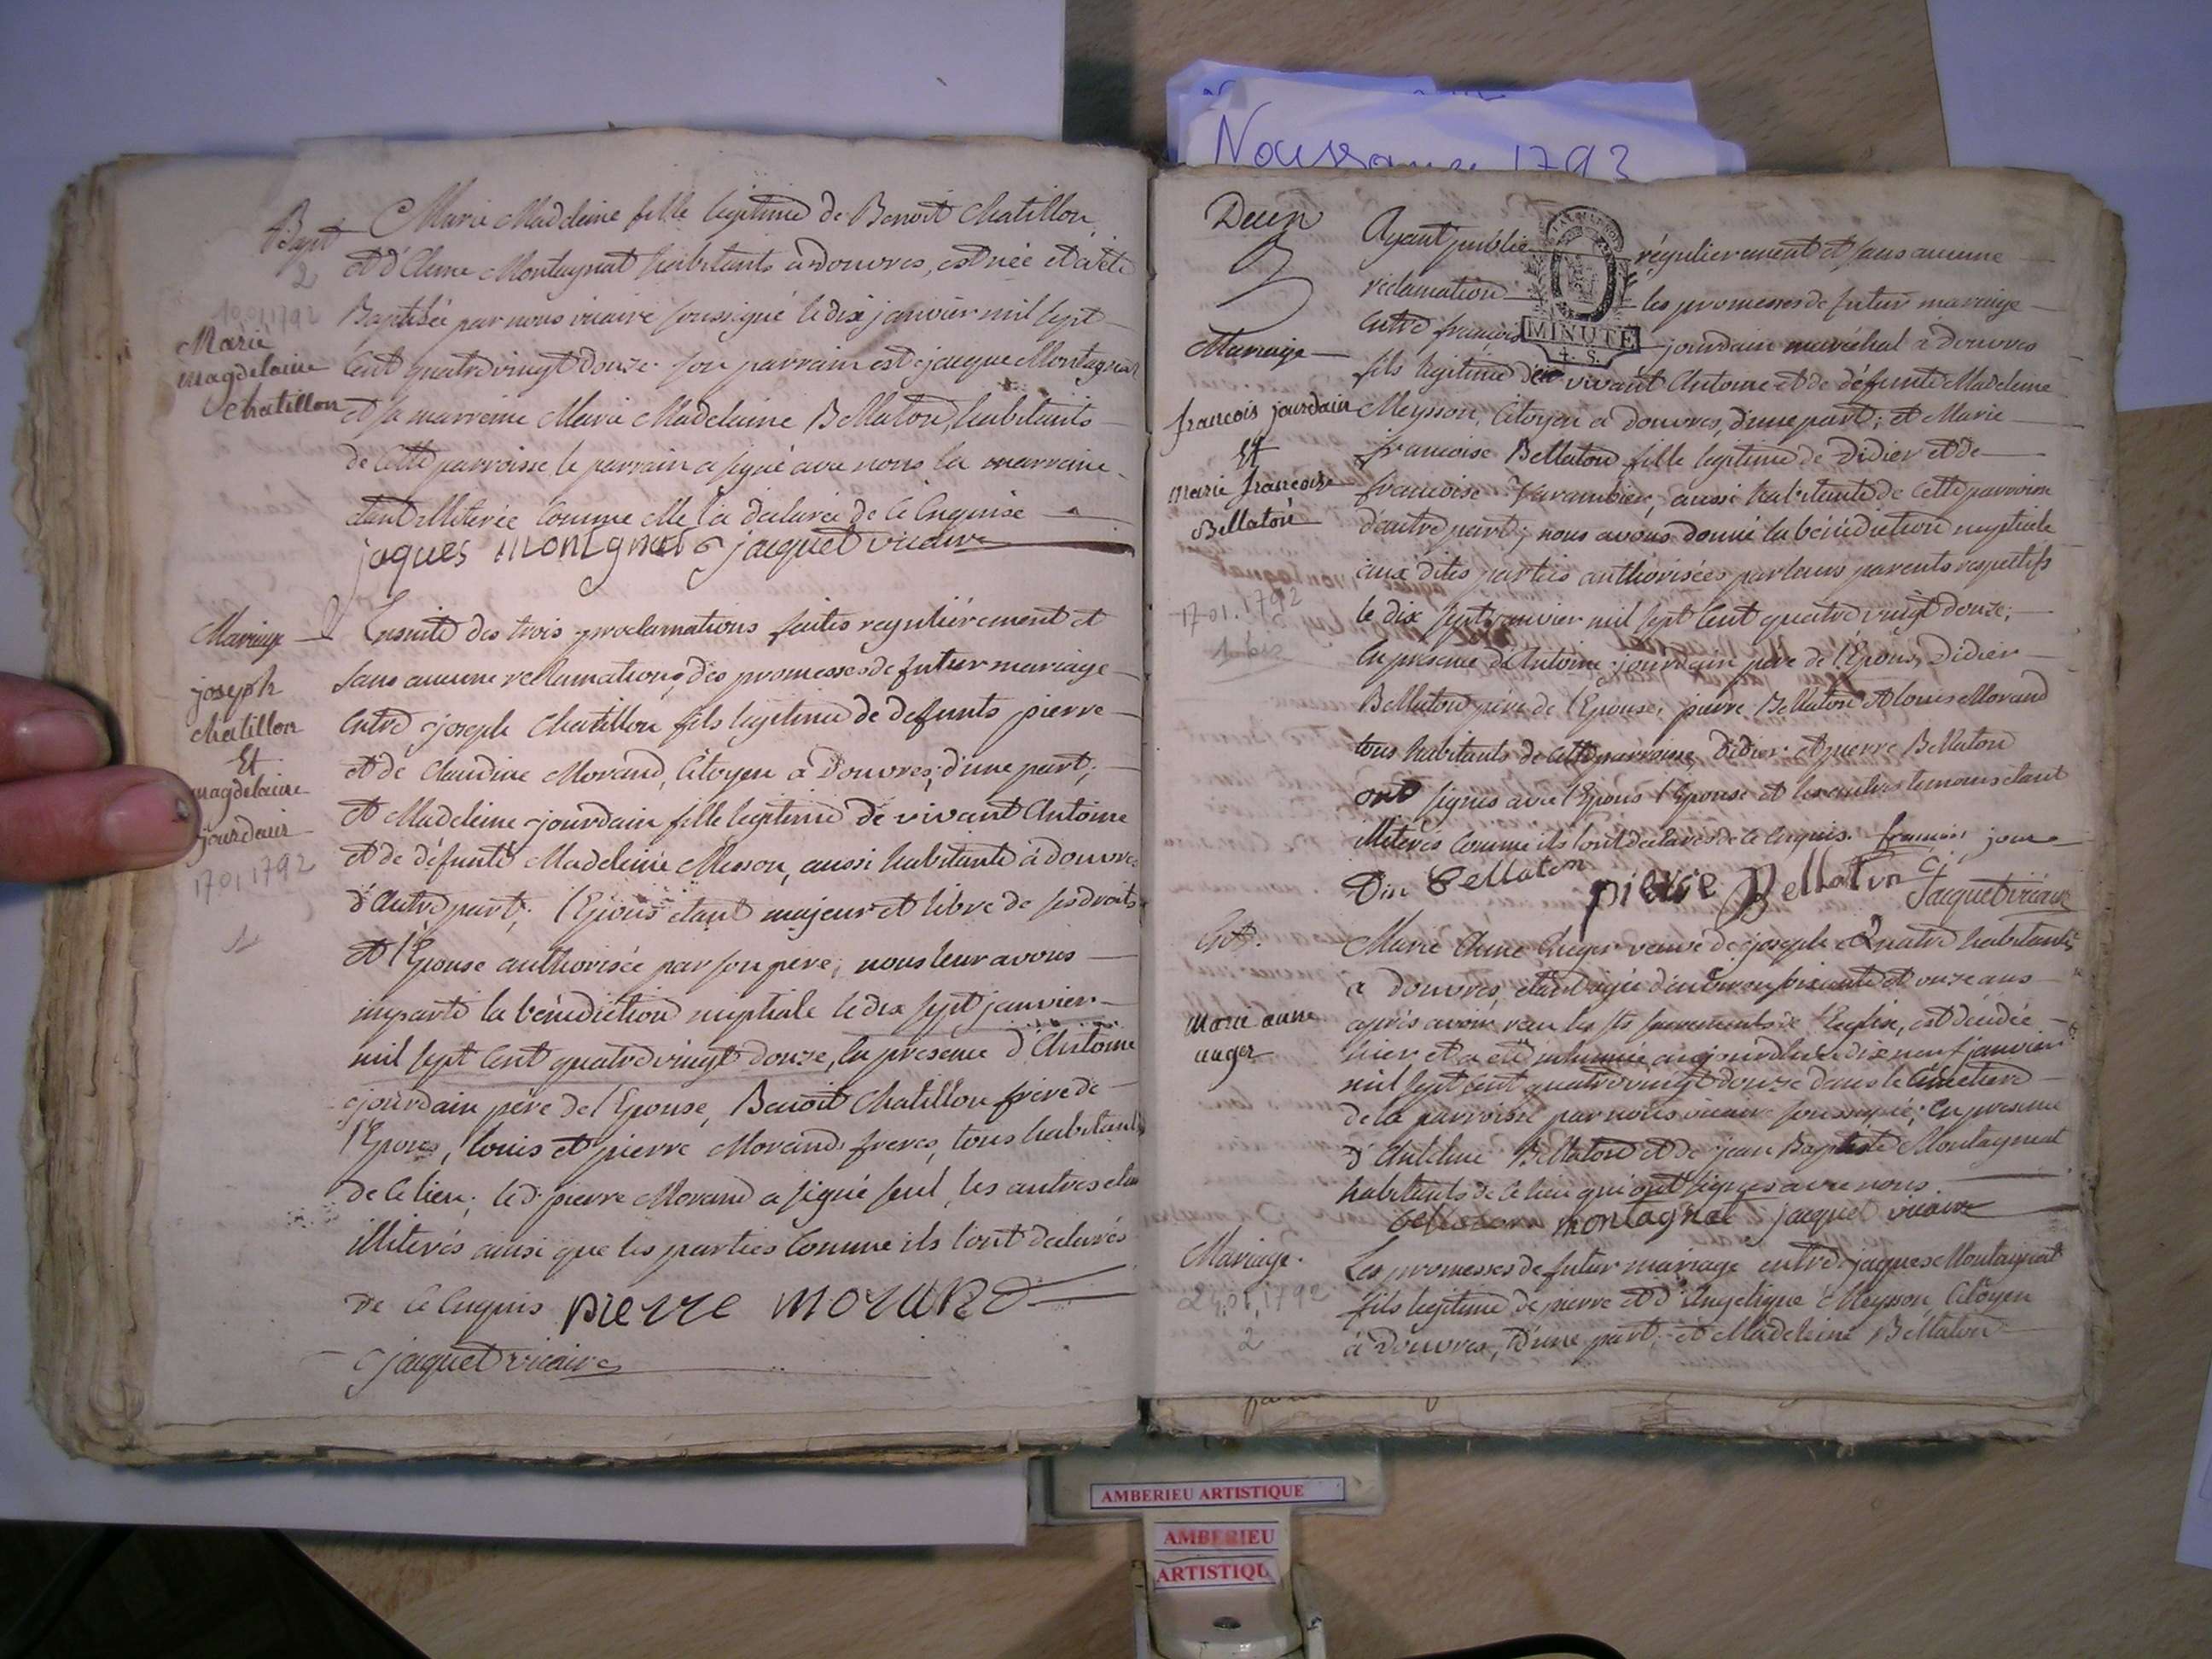 Naissance 1793
Bapt
2
10 01 1792
Marie
magdelaine
chatillon
Marie Madeleine fille legitime de Benoit Chatillon
et d'Anne Montagnat habitants à douvres, est née et a été
Baptisée par nous vicaire soussigné le dix janvier mil sept
Cent quatre vingt douze. son parrain est jacque Montagnat
et sa marreine Marie Madelaine Bellaton, habitants
de Cette parroisse le parrain a signé avec nous la marraine
etant illiterée Comme elle l'a declarée de Ce Enquise
jaques montgnat jacquet vicaire
Mariage
joseph
chatillon
Et
magdelaine
jourdain
17 01 1792
1
Ensuite des trois proclamations faites regulièrement et
sans aucune reclamations, des promesses de futur mariage
Entre joseph Chatillon fils legitime de defunts pierre
et de Claudine Morand, Citoyen a Douvres, d'une part;
et Madeleine jourdain fille legitime de vivant Antoine
et de défunte Madeleine Messon, aussi habitante à douvres
d'Autre part; l'Epoux etant majeur et libre de ses droits
et l'Epouse authorisée par son pere; nous leur avons
imparti la bénédiction nuptiale le dix sept janvier
mil sept Cent quatre vingt douze, En presence d'Antoine
jourdain père de l'Epouse, Benoit Chatillon frère de
l'Epoux, louis et pierre Morand freres, tous habitants
de Ce lieu; led. pierre Morand a signé seul, les autres etant
illiterés ainsi que les parties Comme ils l'ont declarés
de Ce Enquis pierre morand
jacquet vicaire
Deux
Mariage
francois jourdain
Et
marie francoise
Bellaton
17-01.1792
1 bis
Ayant publié régulierement et sans aucune
réclamation les promesses de futur mariage
Entre françois jourdain maréchal à Douvres
MINUTE
4. S.
fils legitime de vivant Antoine et de défunte Madeleine
Meysson, Citoyen a douvres, d'une part; et Marie
francoise Bellaton fille legitime de Didier et de
francoise Varambier, aussi habitante de Cette parroisse
d'autre part; nous avons donné la bénédiction nuptiale
aux dites parties authorisées par leurs parents respectifs
le dix sept janvier mil sept Cent quatre vingt douze;
En presence d'Antoine jourdain père de l'Epoux, Didier
Bellaton père de l'Epouse, pierre Bellaton et louis Morand
tous habitants de Cette parroisse, Didier et pierre Bellaton
ont signés avec l'Epoux l'Epouse et les autres temoins etant
illiterés Comme ils l'ont declarés de Ce Enquis. francois jour
Din Bellaton pierre Bellaton Jacquet vicaire
Ent.
marie anne
auger
Marie Anne Auger veuve de joseph Quatre habitante
a douvres, etant agée d'environ soixante et onze ans
après avoir reçu les Sts sacrements de l'Eglise, est décédée
hier et a été inhumée aujourdhui dix neuf janvier
mil sept cent quatre vingt douze dans le Cimetiere
de la parroisse par nous vicaire soussigné; En presence
d'Antelme Bellaton et de jean Baptiste Montagnat
habitants de Ce lieu qui ont signés avec nous
bellaton montagnat jacquet vicaire
Mariage.
24.01.1792
2
Les promesses de futur mariage entre jaques Montagnat
fils legitime de pierre et d'Angelique Meysson, Citoyen
à Douvres, d'une part; et Madeleine Bellaton
AMBERIEU ARTISTIQUE
AMBERIEU
ARTISTIQU